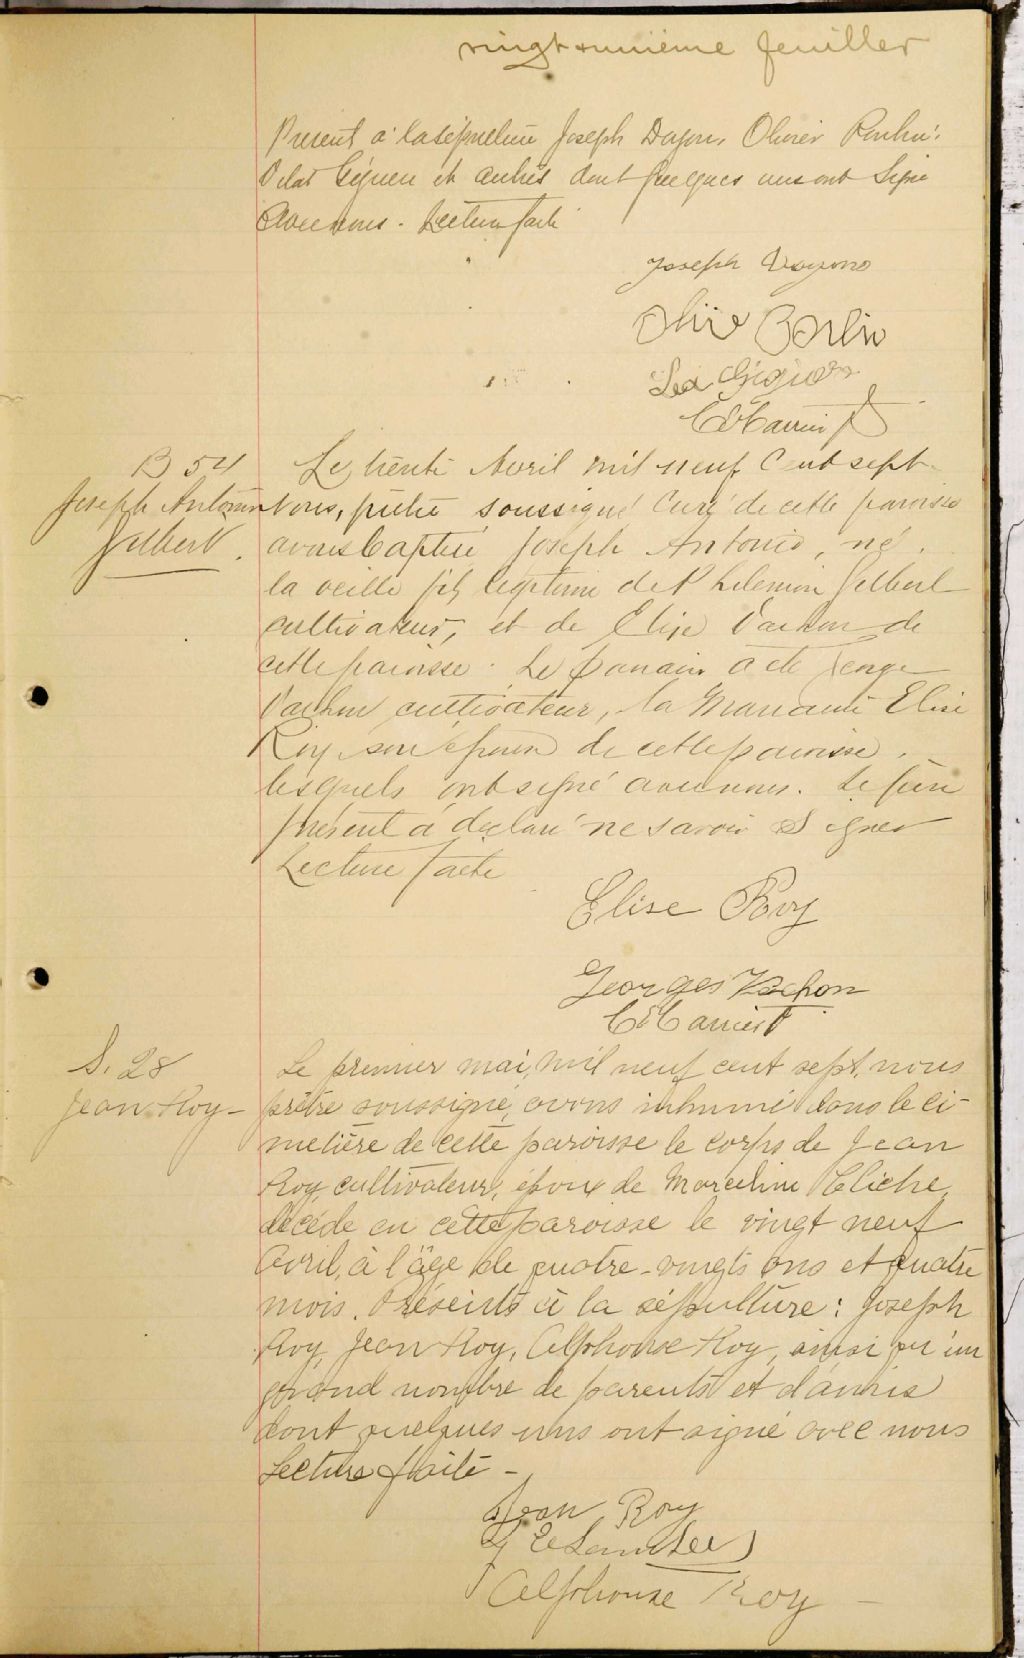 vingt-unième feuillet
Présent à la sépulture Joseph Doyon, Olivier Poulin,
Gégnér et autres dont quelques uns ont signé
avec nous. Lecture faite
Joseph Doyon
Olivier
B 54
Joseph Antonio
Gilbert.
Le trente Avril mil neuf cent sept
nous, prêtre soussigné Curé de cette paroisse
avons baptisé Joseph Antonio, né
la veille fils légitime de Philémon Gilbert
cultivateur, et de Elise Vachon de
cette paroisse. Le parrain a été Georges
Vachon cultivateur, la Marraine Elise
Roy son épouse de cette paroisse,
lesquels ont signé avec nous. Le père
présent a déclaré ne savoir Signer
Lecture faite
Elise Roy
Georges Vachon
S. 28
Jean Roy-
Le premier mai, mil neuf cent sept, nous
prêtre soussigné, avons inhumé dans le ci-
metière de cette paroisse le corps de Jean
Roy, cultivateur, époux de Marceline Cliche,
décédé en cette paroisse le vingt neuf
Avril, à l'âge de quatre-vingts ans et quatre
mois. Présents à la sépulture: Joseph
Roy, Jean Roy, Alphonse Roy, ainsi qu'un
grand nombre de parents et d'amis
dont quelques uns ont signé avec nous
Lecture faite -
Jean Roy
Alphonse Roy